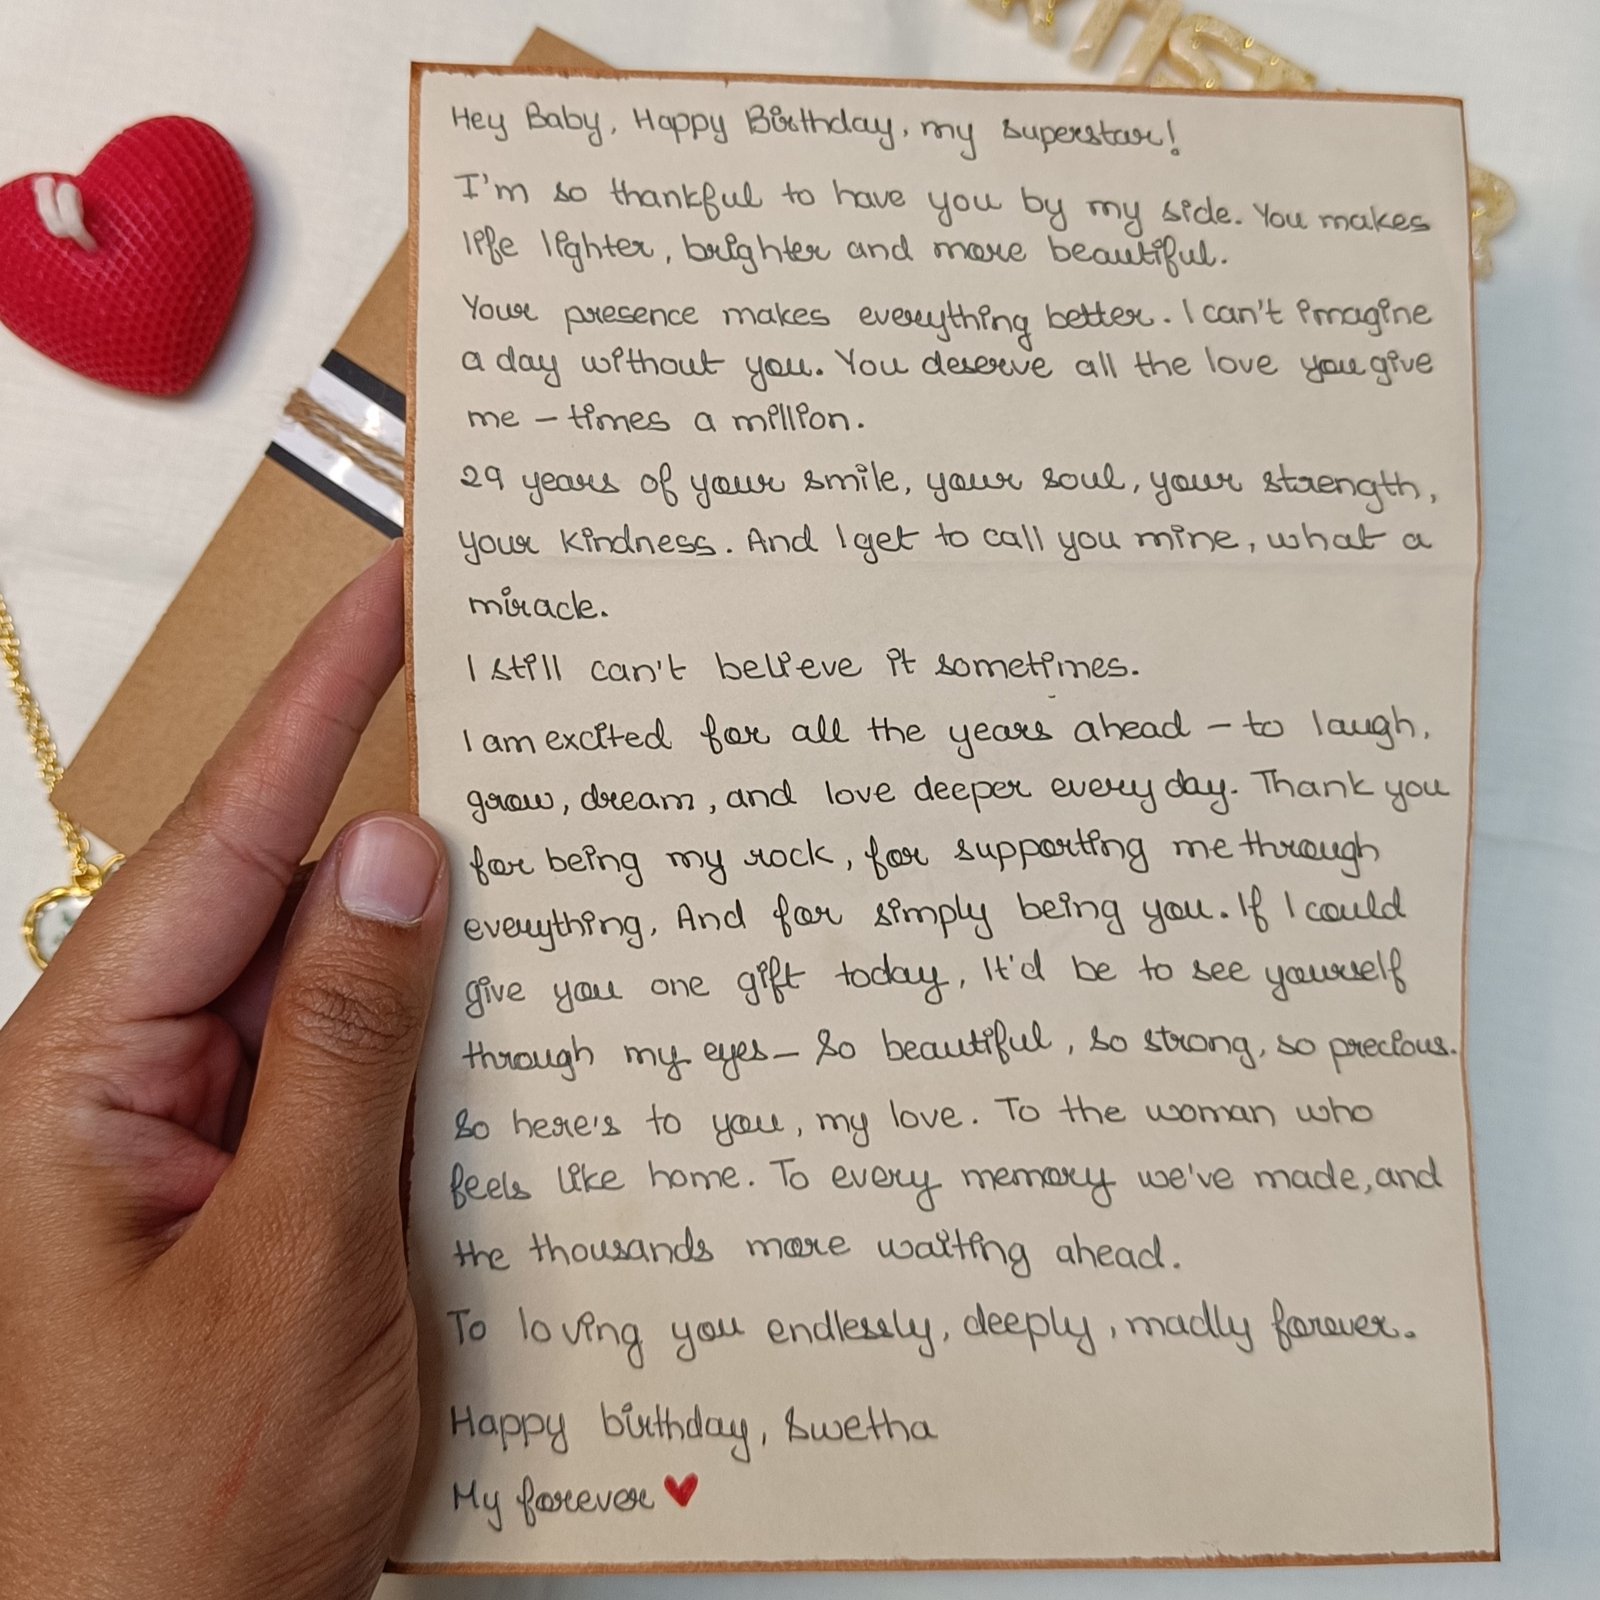 Hey Baby, Happy Birthday, my superstar!
I'm so thankful to have you by my side. You makes
life lighter, brighter and more beautiful.
Your presence makes everything better. I can't imagine
a day without you. You deserve all the love you give
me – times a million.
29 years of your smile, your soul, your strength,
your kindness. And I get to call you mine, what a
miracle.
I still can't believe it sometimes.
I am excited for all the years ahead – to laugh,
grow, dream, and love deeper every day. Thank you
for being my rock, for supporting me through
everything, And for simply being you. If I could
give you one gift today, It'd be to see yourself
through my eyes – So beautiful, so strong, so precious.
So here's to you, my love. To the woman who
feels like home. To every memory we've made, and
the thousands more waiting ahead.
To loving you endlessly, deeply, madly forever.
Happy birthday, Swetha
My forever ♥